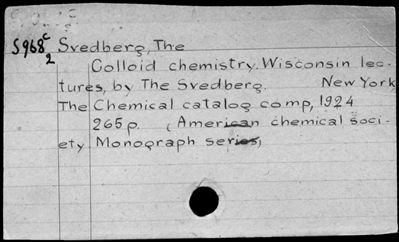 S968c Svedberg, The
2
Colloid chemistry. Wisconsin lec-
tures, by The Svedberg. New York
The Chemical catalog comp, 1924
265p. (American chemical soci-
ety. Monograph series)